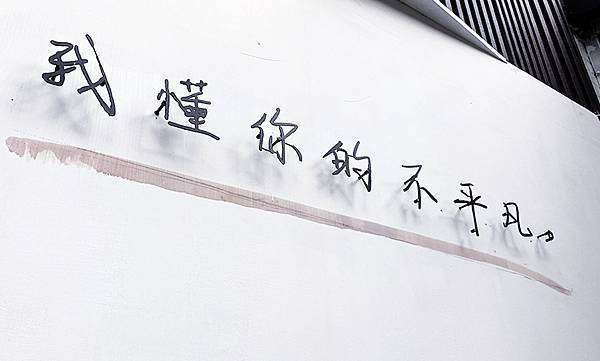 我懂你的不平凡。